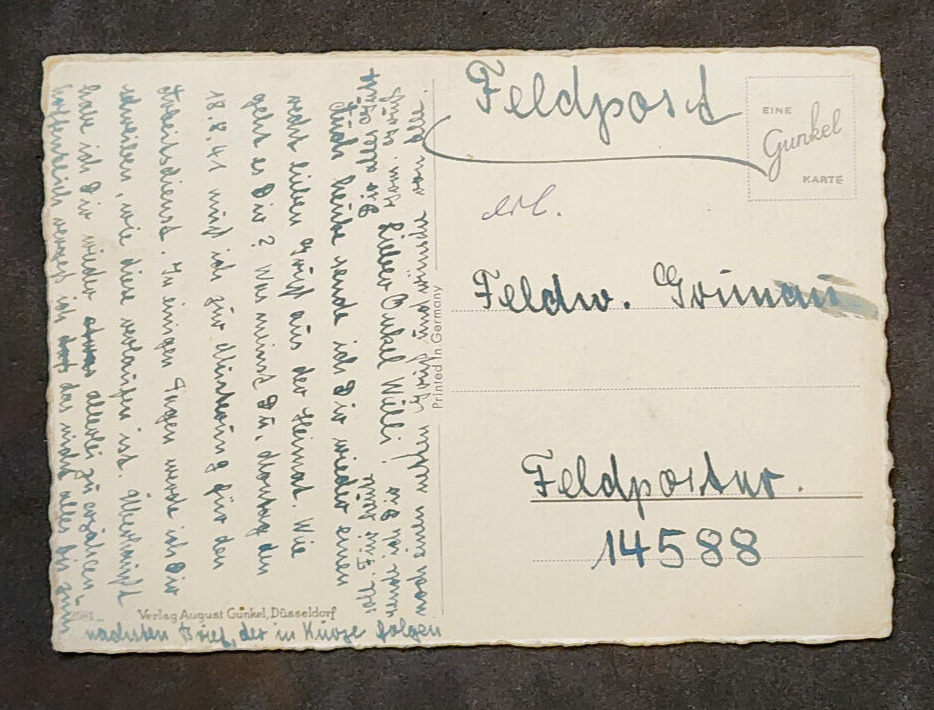 Feldpost
EINE
Gunkel
KARTE
erl.
Feldw. Grunau
Feldpostnr.
14588
Printed in Germany
Lieber Onkel Willi!
Auch heute sende ich Dir wieder einen
recht lieben Gruß aus der Heimat. Wie
geht es Dir? Was meinst Du, Montag den
18.8.41 muß ich zur Musterung für den
Arbeitsdienst. In einigen Tagen werde ich Dir
schreiben, wie diese verlaufen ist. Überhaupt
habe ich Dir wieder allerlei zu erzählen.
Hoffentlich vergeß ich das nicht alles bis zum
nächsten Brief, der in Kürze folgen
Für heute
noch einen netten Gruß und wünsche
Verlag August Gunkel, Düsseldorf